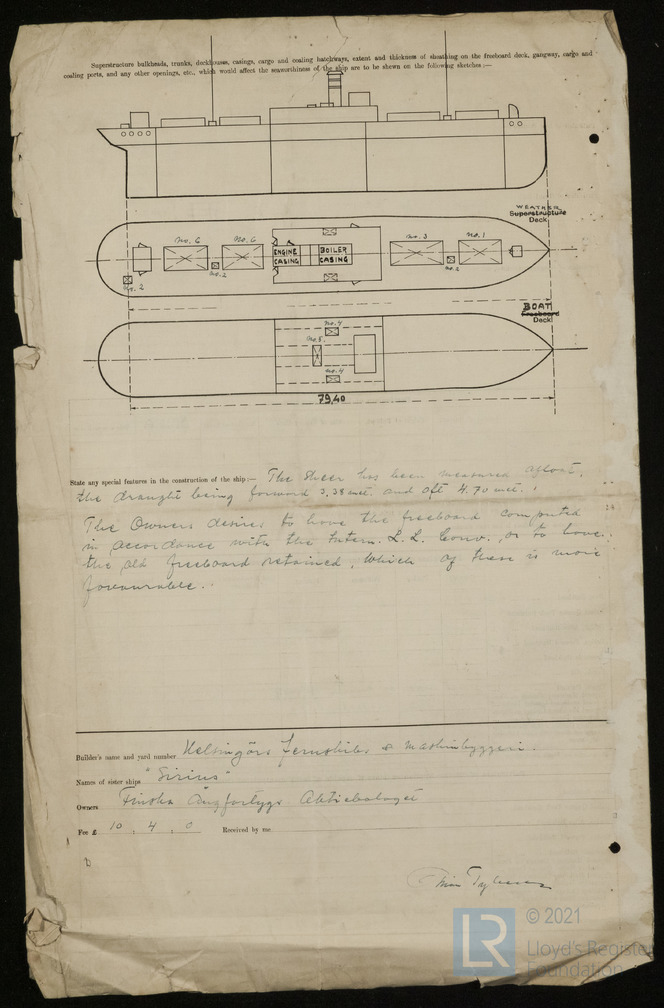 Superstructure bulkheads, trunks, deckhouses, casings, cargo and coaling hatchways, extent and thickness of sheathing on the freeboard deck, gangway, cargo and
coaling ports, and any other openings, etc., which would affect the seaworthiness of the ship are to be shewn on the following sketches:—
WEATHER
Superstructure
Deck
no. 6
no. 6
ENGINE CASING
BOILER CASING
no. 3
no. 1
no. 2
no. 2
no. 2
BOAT
Freeboard
Deck
no. 4
no. 5
no. 4
79,40
State any special features in the construction of the ship:— The Sheer has been measured afloat,
the draught being forward 3,38 met. and aft 4.70 met.
The Owners desires to have the freeboard computed
in accordance with the Intern. L. L. Conv., or to have
the old freeboard retained, which of these is more
favourable.
Builder's name and yard number Helsingörs Jernskibs & Maskinbyggeri.
Names of sister ships "Sirius"
Owners Finska Ångfartygs Aktiebolaget
Fee £ 10 . 4 . 0 Received by me
LR
© 2021
Lloyd's Register
Foundation